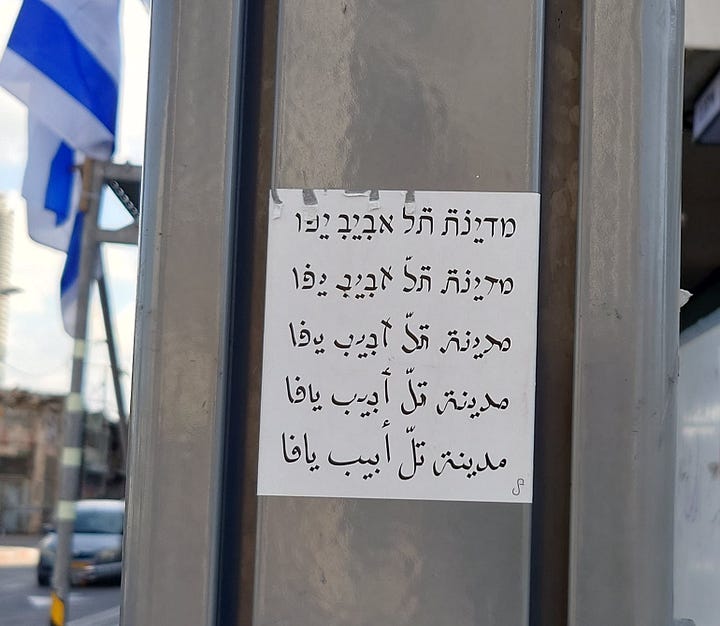 מדינת תל אביב יפו
מדינת תל אביב יפו
מדינת תל אביב יפו
مدينة تلّ أبيب يافا
مدينة تلّ أبيب يافا